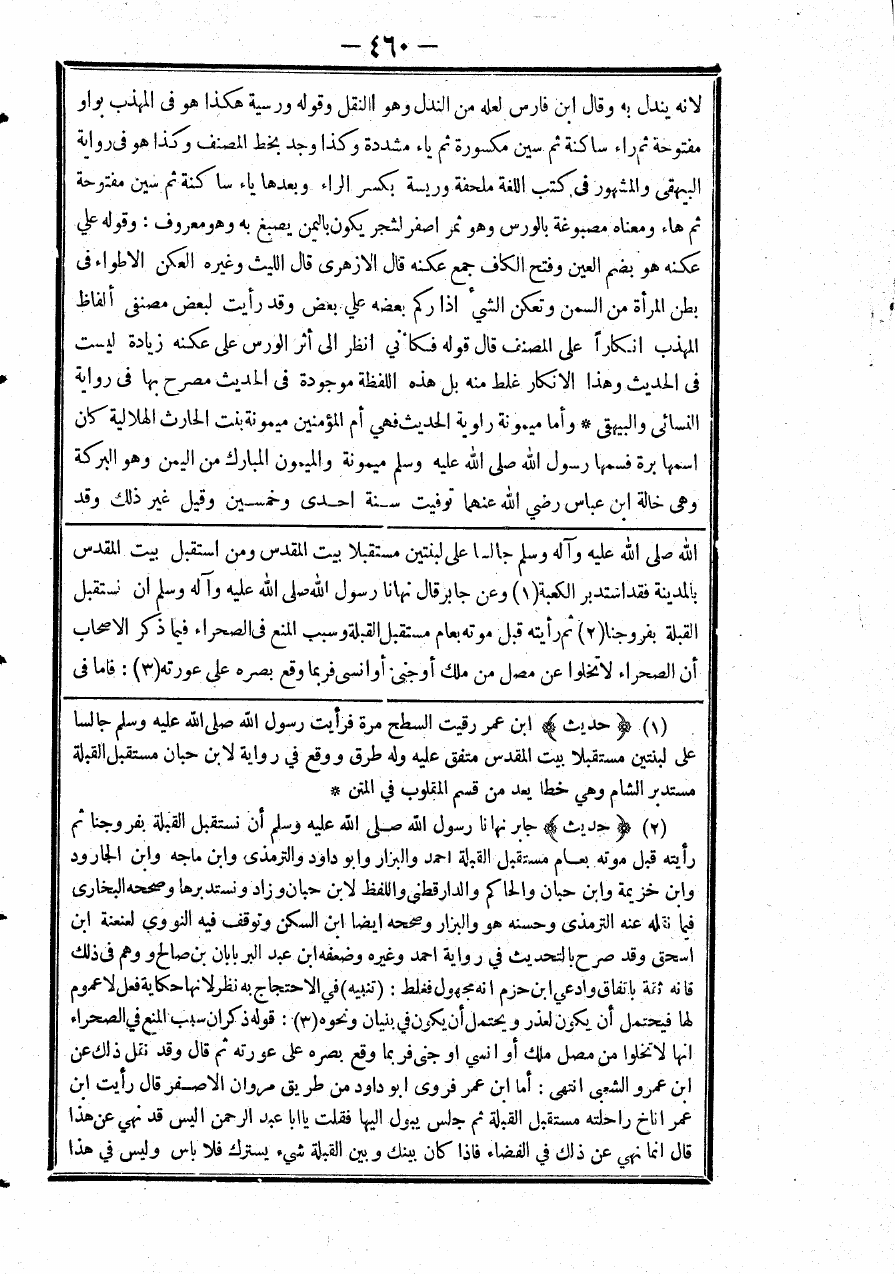 — ٤٦٠ —
لانه يندل به وقال ابن فارس لعله من الندل وهو االنقل وقوله ورسية هكذا هو فى المهذب بواو
مفتوحة ثم راء ساكنة ثم سين مكسورة ثم ياء مشددة وكذا وجد بخط المصنف وكذا هو فى رواية
البيهقى والمشهور فى كتب اللغة ملحفة وريسة بكسر الراء وبعدها ياء ساكنة ثم سين مفتوحة
ثم هاء ومعناه مصبوغة بالورس وهو ثمر اصفر لشجر يكون باليمن يصبغ به وهو معروف : وقوله علي
عكنه هو بضم العين وفتح الكاف جمع عكنه قال الازهرى قال الليث وغيره العكن الاطواء فى
بطن المرأة من السمن وتعكن الشيء اذا ركم بعضه علي بعض وقد رأيت لبعض مصنفى ألفاظ
المهذب انكاراً على المصنف قال قوله فكأني انظر الى أثر الورس على عكنه زيادة ليست
فى الحديث وهذا الانكار غلط منه بل هذه اللفظة موجودة فى الحديث مصرح بها فى رواية
النسائى والبيهقى * وأما ميمونة راوية الحديث فهي أم المؤمنين ميمونة بنت الحارث الهلالية كان
اسمها برة فسمها رسول الله صلى الله عليه وسلم ميمونة والميمون المبارك من اليمن وهو البركة
وهى خالة ابن عباس رضي الله عنهما توفيت سنة احدى وخمسين وقيل غير ذلك وقد
الله صلى الله عليه وآله وسلم جالسا على لبنتين مستقبلا بيت المقدس ومن استقبل بيت المقدس
بالمدينة فقد استدبر الكعبة (١) وعن جابر قال نهانا رسول الله صلى الله عليه وآله وسلم ان نستقبل
القبلة بفروجنا (٢) ثم رأيته قبل موته بعام مستقبل القبلة وسبب المنع فى الصحراء فيما ذكر الاصحاب
أن الصحراء لاتخلوا عن مصل من ملك أوجنى أوانسى فربما وقع بصره على عورته (٣) : فاما فى
(١) ﴿ حديث ﴾ ابن عمر رقيت السطح مرة فرأيت رسول الله صلى الله عليه وسلم جالسا
على لبنتين مستقبلا بيت المقدس متفق عليه وله طرق ووقع في رواية لابن حبان مستقبل القبلة
مستدبر الشام وهي خطا يعد من قسم المقلوب في المتن *
(٢) ﴿ حديث ﴾ جابر نهانا رسول الله صلى الله عليه وسلم أن نستقبل القبلة بفروجنا ثم
رأيته قبل موته بعام مستقبل القبلة احمد والبزار وابو داود والترمذى وابن ماجه وابن الجارود
وابن خزيمة وابن حبان والحاكم والدارقطنى واللفظ لابن حبان وزاد ونستدبرها وصححه البخارى
فيما نقله عنه الترمذى وحسنه هو والبزار وصححه ايضا ابن السكن وتوقف فيه النووي لعنعنة ابن
اسحق وقد صرح بالتحديث في رواية احمد وغيره وضعفه ابن عبد البر بابان بن صالح و وهم فى ذلك
فانه ثقة باتفاق وادعي ابن حزم انه مجهول فغلط : (تنبيه) في الاحتجاج به نظر لانها حكاية فعل لاعموم
لها فيحتمل أن يكون لعذر ويحتمل أن يكون في بنيان ونحوه (٣) : قوله ذكر ان سبب المنع في الصحراء
انها لاتخلوا من مصل ملك أو انسي او جنى فربما وقع بصره على عورته ثم قال وقد نقل ذلك عن
ابن عمر و الشعبى انتهى : أما ابن عمر فروى ابو داود من طريق مروان الاصفر قال رأيت ابن
عمر اناخ راحلته مستقبل القبلة ثم جلس يبول اليها فقلت ياابا عبد الرحمن اليس قد نهي عن هذا
قال انما نهي عن ذلك في الفضاء فاذا كان بينك وبين القبلة شيء يسترك فلا باس وليس في هذا